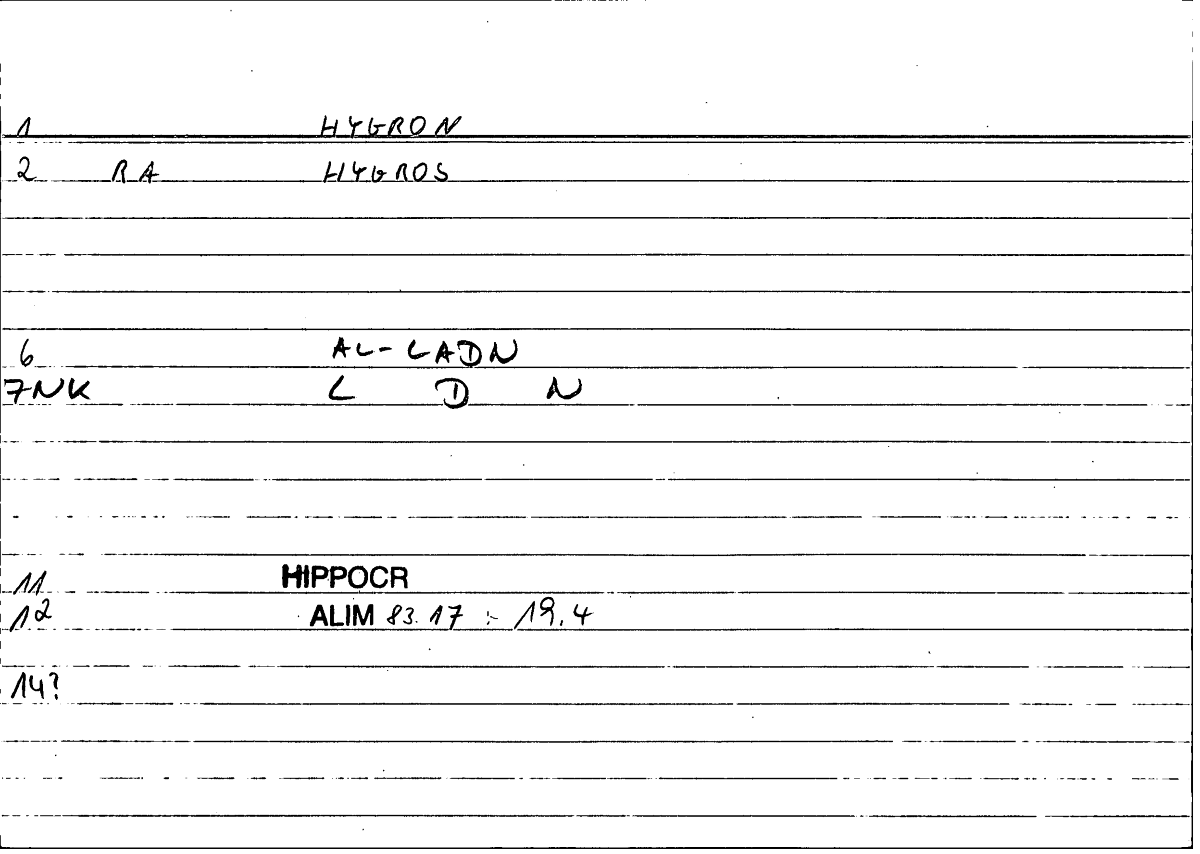 1 HYGRON
2 RA HYGROS
6 AL-LADN
7NK L D N
11 HIPPOCR
12 ALIM 83.17 : 19.4
14?